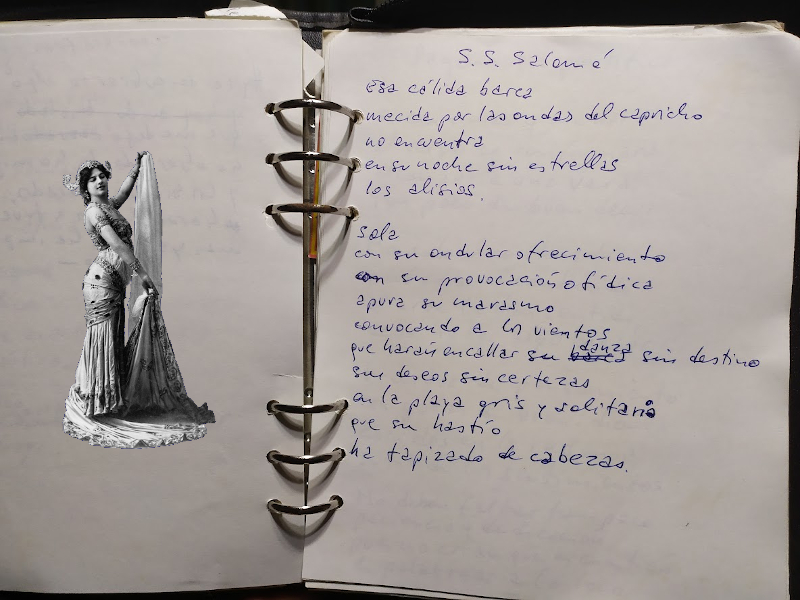 S. S. Salomé
esa cálida barca
mecida por las ondas del capricho
no encuentra
en su noche sin estrellas
los alisios.
sola
con su ondular ofrecimiento
con su provocación ofídica
apura su marasmo
convocando a los vientos
que harán encallar su danza sin destino
sus deseos sin certezas
en la playa gris y solitaria
que su hastío
ha tapizado de cabezas.